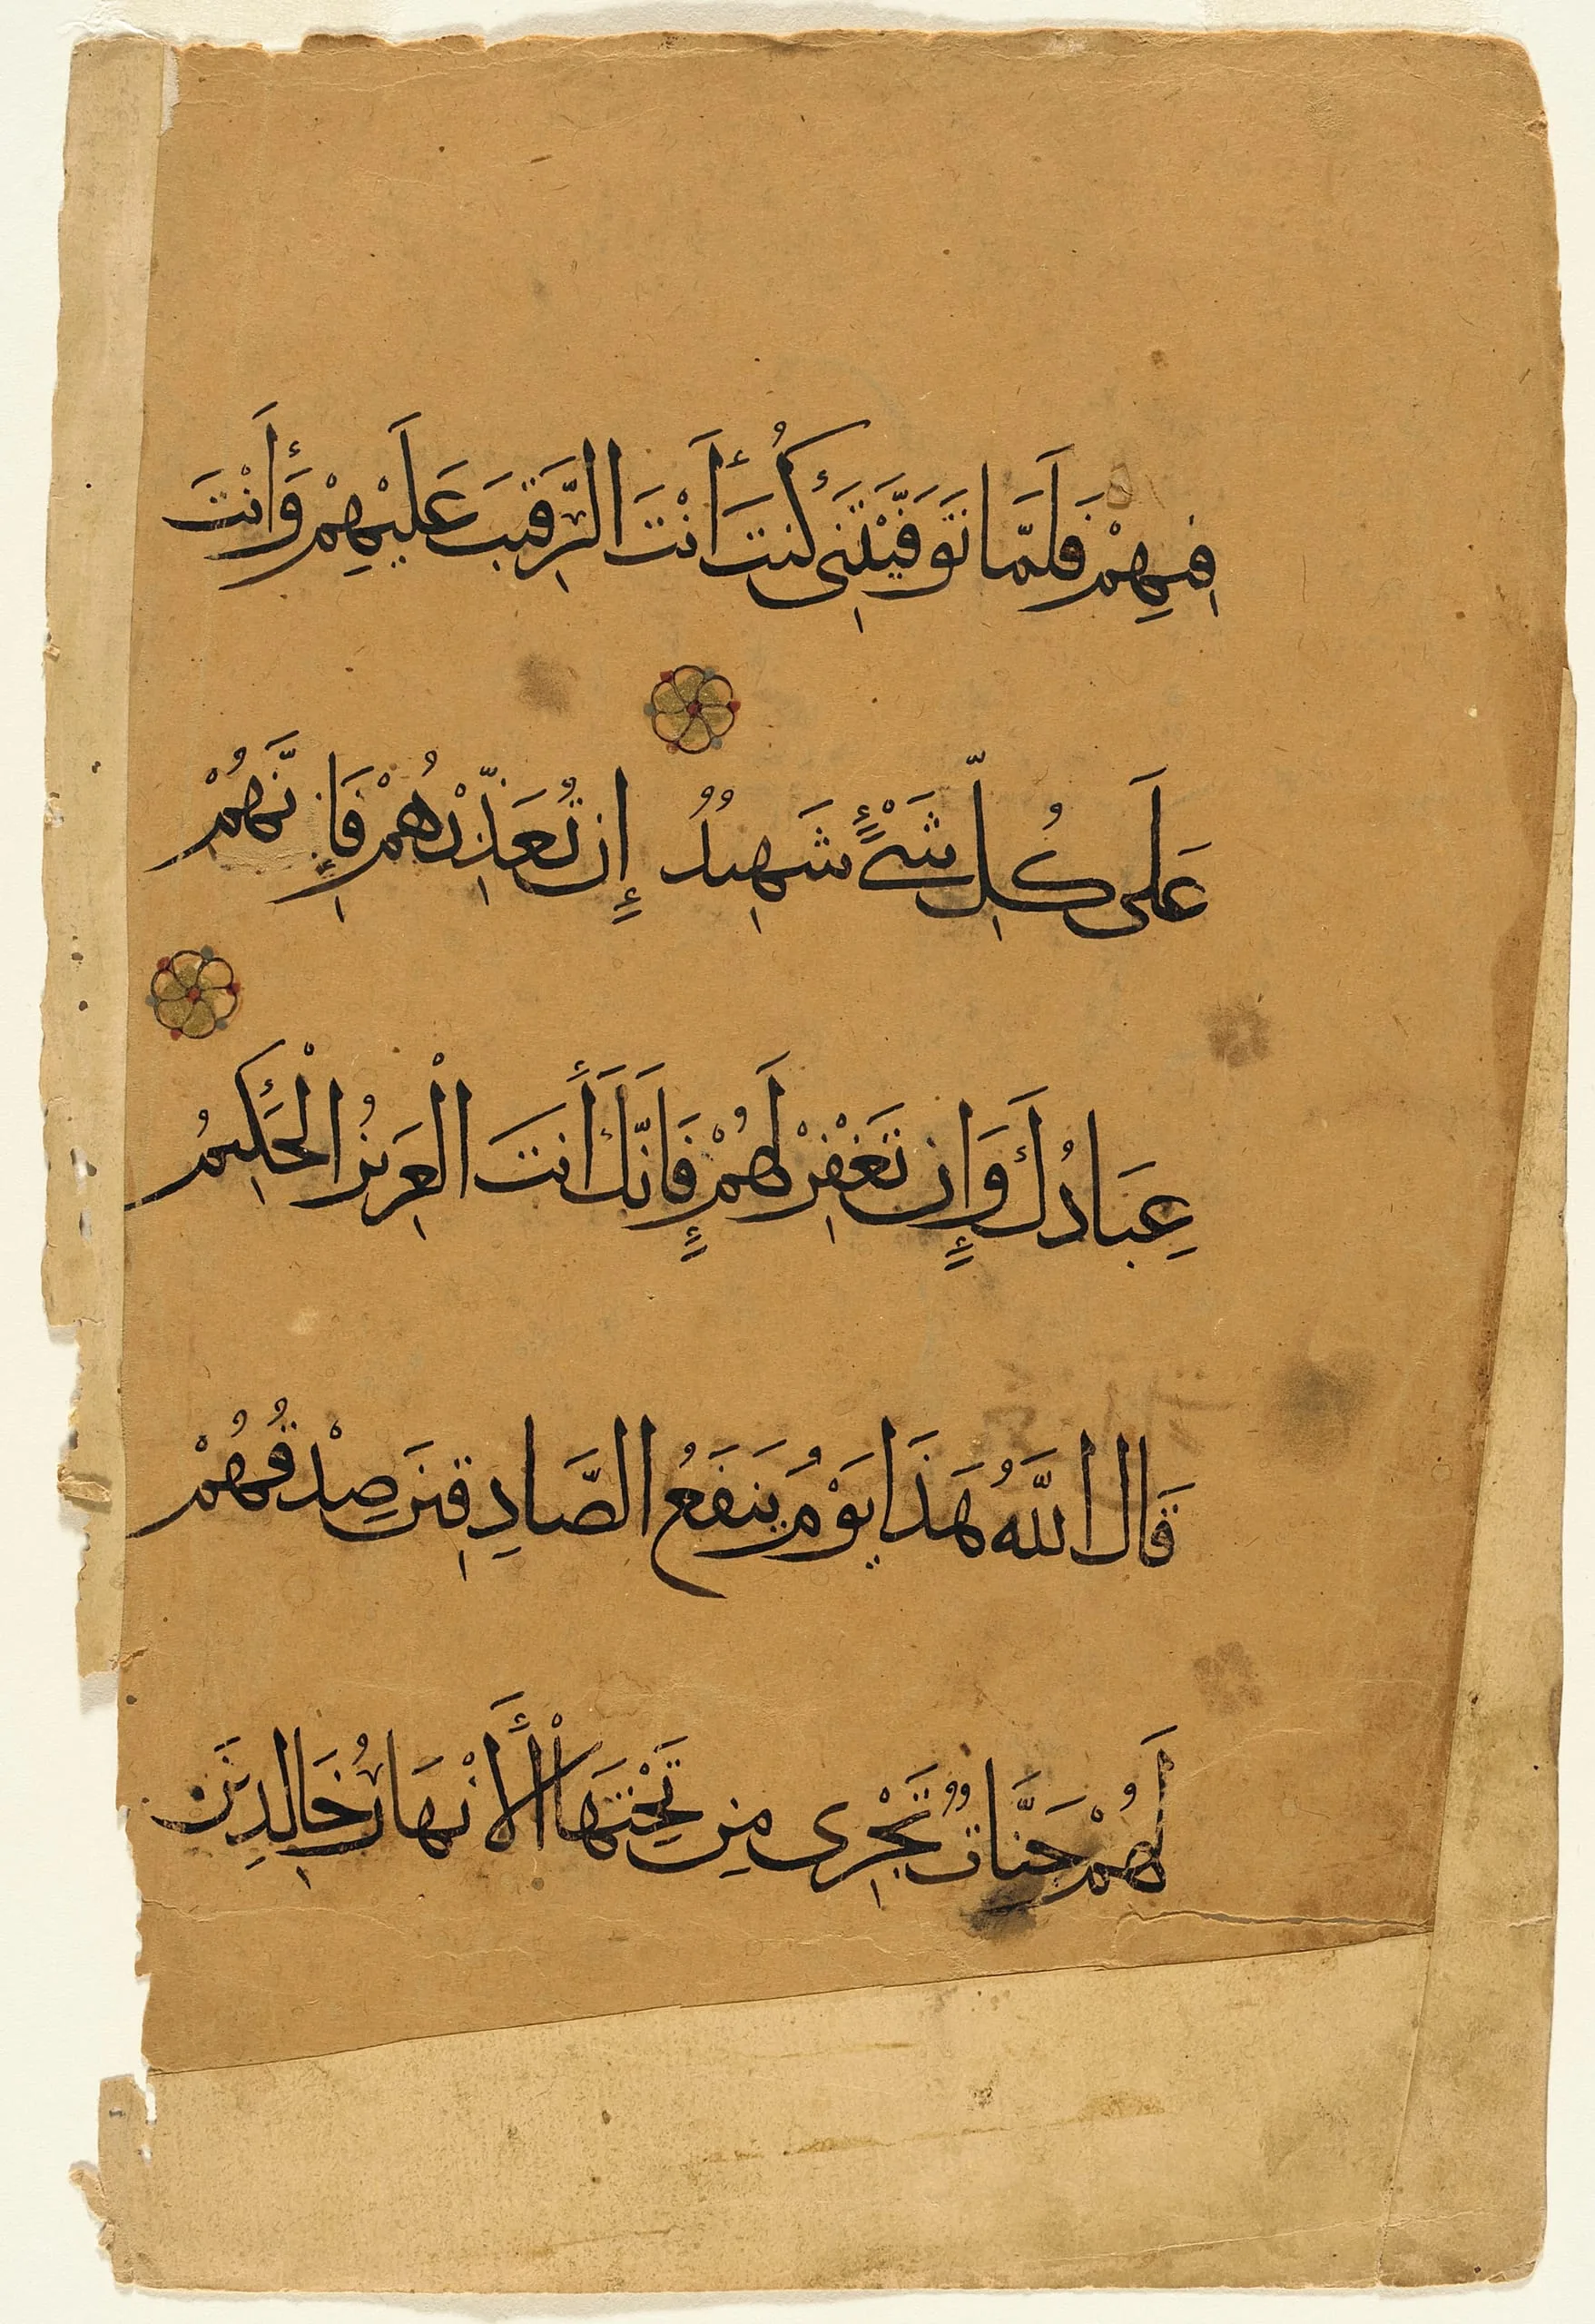 فِيهِمْ فَلَمَّا تَوَفَّيْتَنِى كُنتَ أَنْتَ الرَّقِيبَ عَلَيْهِمْ وَأَنْتَ
عَلَى كُلِّ شَىْءٍ شَهِيدٌ إِن تُعَذِّبْهُمْ فَإِنَّهُمْ
عِبَادُكَ وَإِن تَغْفِرْ لَهُمْ فَإِنَّكَ أَنتَ الْعَزِيزُ الْحَكِيمُ
قَالَ اللَّهُ هَذَا يَوْمُ يَنفَعُ الصَّادِقِينَ صِدْقُهُمْ
لَهُمْ جَنَّاتٌ تَجْرِى مِن تَحْتِهَا الْأَنْهَارُ خَالِدِينَ